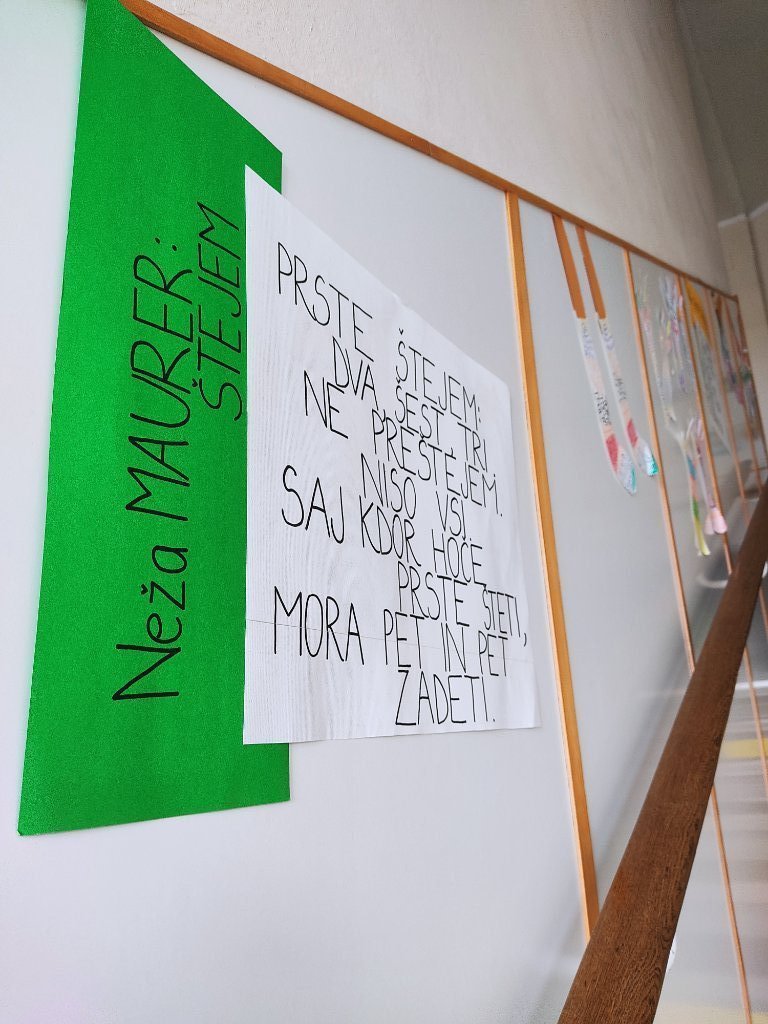 Neža MAURER:
ŠTEJEM
PRSTE ŠTEJEM:
DVA, ŠEST, TRI.
NE PREŠTEJEM.
NISO VSI.
SAJ KDOR HOČE
PRSTE ŠTETI,
MORA PET IN PET
ZADETI.